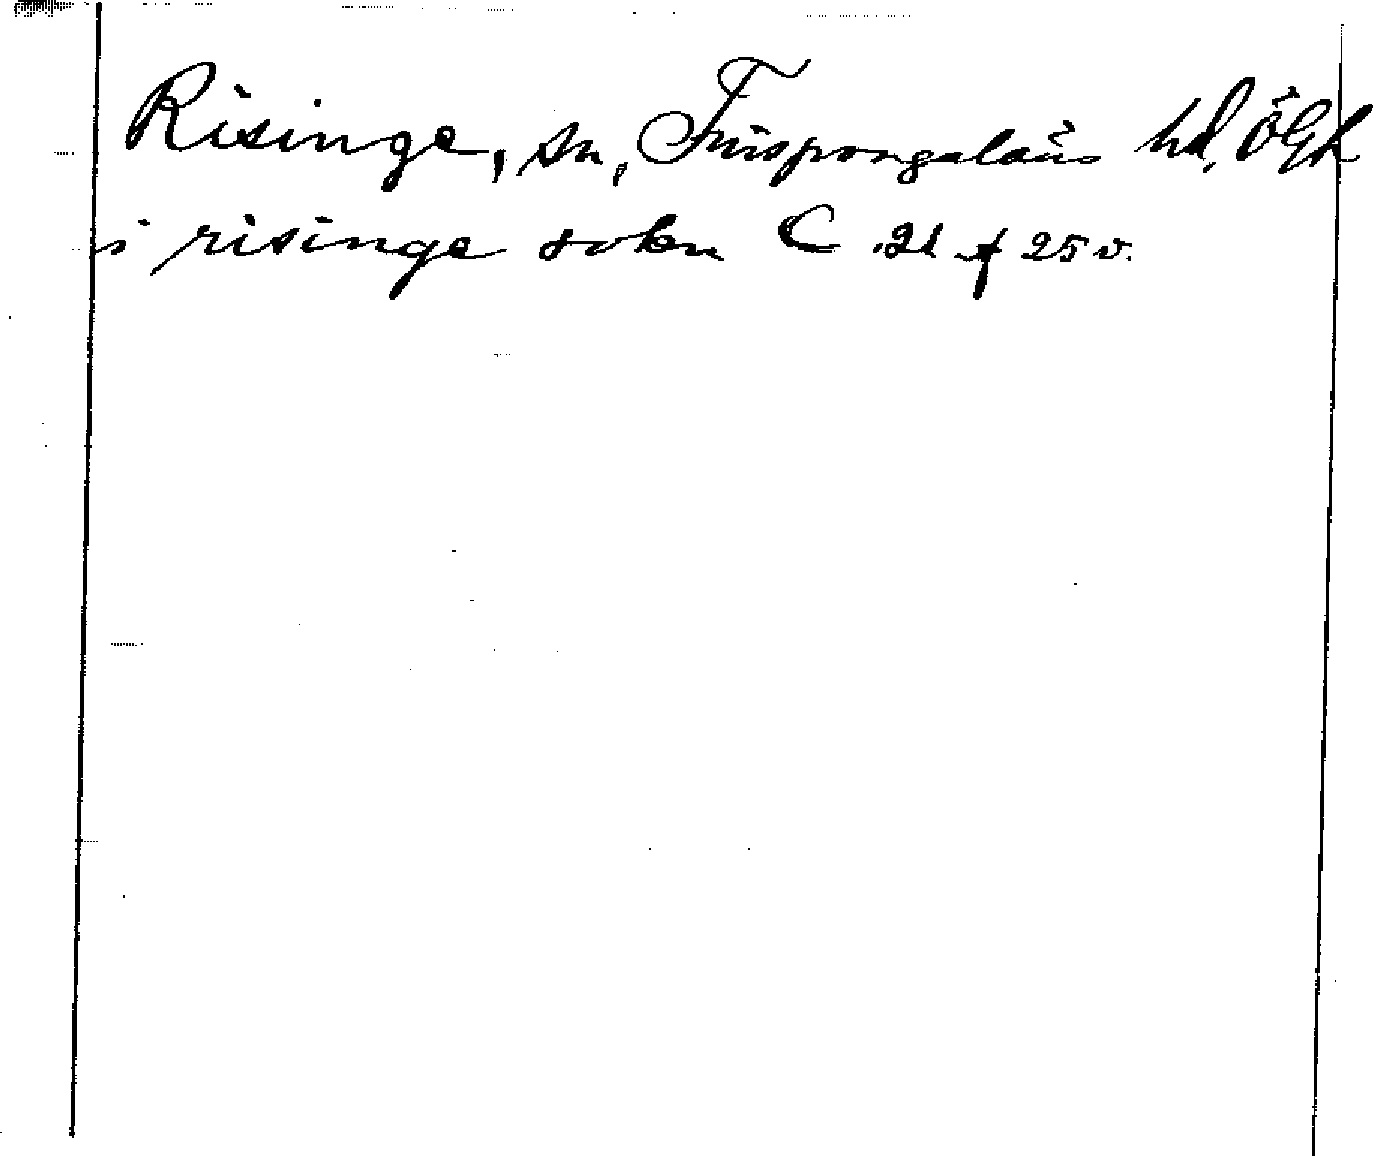 Risinge, sn, Finspongaläns hd, ÖGh
i risinge sokn C 21 f 25 v.